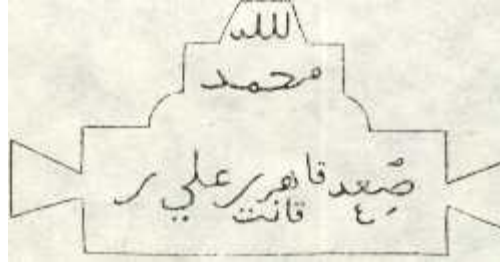 الله
محمد
صْعِد قاهر علي
قانت